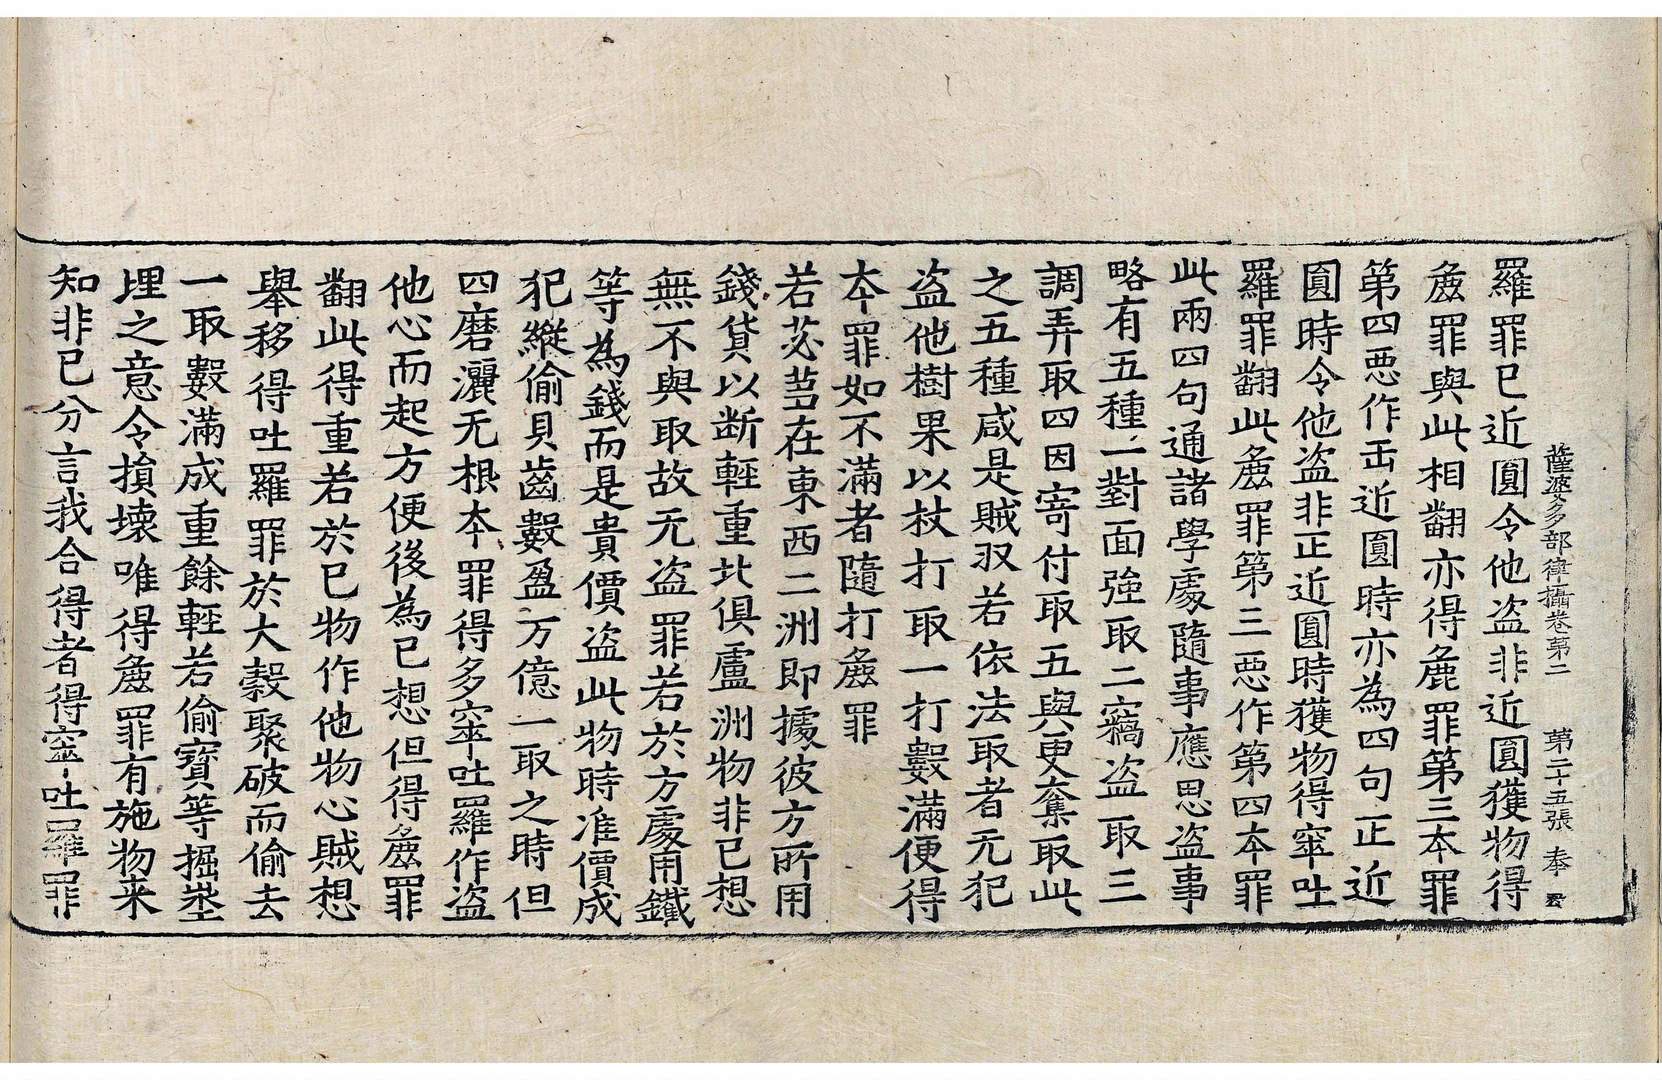 薩波多部律攝卷第二　第二十五張　奉
羅罪已近圓令他盗非近圓獲物得
麁罪與此相翻亦得麁罪第三本罪
第四惡作缶近圓時亦為四句正近
圓時令他盗非正近圓時獲物得窣吐
羅罪翻此麁罪第三惡作第四本罪
此兩四句通諸學處隨事應思盗事
略有五種一對面強取二竊盗取三
調弄取四因寄付取五與更奪取此
之五種咸是賊収若依法取者无犯
盗他樹果以杖打取一打數滿便得
夲罪如不滿者隨打麁罪
若苾芻在東西二洲即據彼方所用
錢貨以断輕重北俱盧洲物非已想
無不與取故无盗罪若於方處用鐵
等為錢而是貴價盗此物時准價成
犯縱偷貝齒數盈万億一取之時但
四磨灑无根夲罪得多窣吐羅作盗
他心而起方便後為已想但得麁罪
翻此得重若於已物作他物心賊想
舉移得吐羅罪於大穀聚破而偷去
一取數滿成重餘輕若偷寶等掘坐
埋之意令損壞唯得麁罪有施物来
知非已分言我合得者得窣吐羅罪